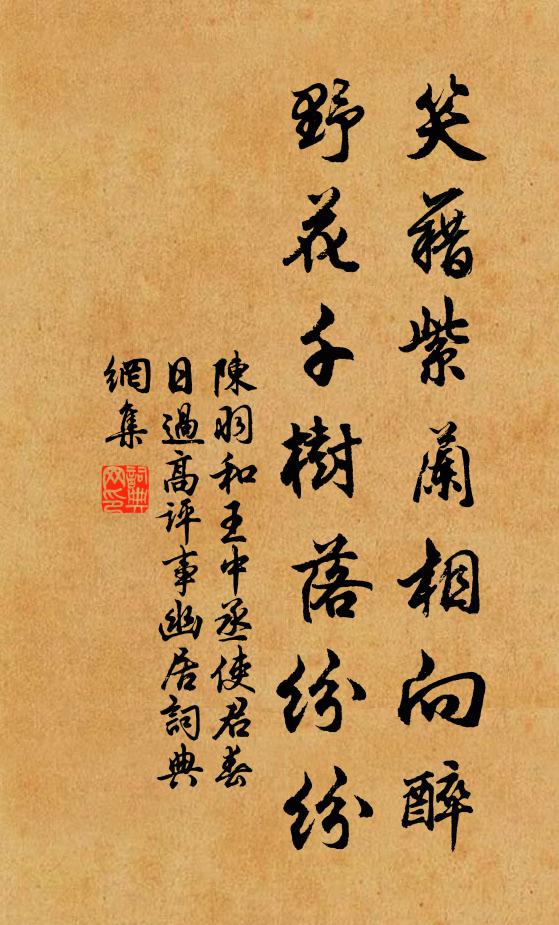 笑藉紫蘭相向醉
野花千樹落紛紛
陳羽和王中丞使君春
日過高評事幽居詞典
網集
詞典
网印